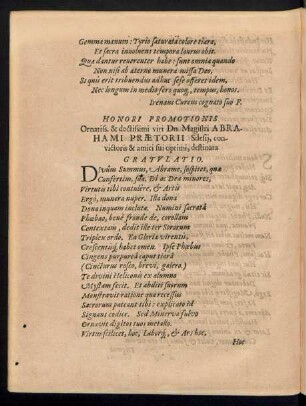 Gemmemanum: Tyrio saturata colore tiara,
Et sacra involvent tempora laurus obit.
Quæ dantur reverenter habe: sunt omnia quando
Non nisi ab æterno munera missa Deo.
Si quis erit tribuendus adhuc sese offeret idem,
Nec longum in medio fers quoq, tempus, honos.
Irenæus Curæus cognato suo F.
HONORI PROMOTIONIS
Ornatiss. & doctissimi viri Dn. Magistri ABRA-
HAMI PRÆTORII Silesij, con-
victoris & amici sui optimi, destinata
GRATULATIO.
Divûm Summus, Abrame, sospites, qua
Confertim, Dî ac Dea minores,
Virtutis tibi contulere, & Artis
Ergò, munera nuper. Illa dona
Dona inquam tuitare. Numini sacratâ
Phœbao, bonâ fronde de, corollam
Contextam, dedit ille ter Sororum
Triplex ordo. En Christa virentis,
Crescentiq, habes omen. Ipse Phœbus
Cingens purpureâ caput tiarâ
(Cincturus roseo, brevi, galero)
Te divini Heliconis ex alumno
Mystam fecit. Et abditi suorum
Monstravit ratione quæ recessus
Sacrorum pateant tibi: explicato id
Signans codice. Sed Minerva fulvo
Ornavit digitos tuos metallo.
Virum scilicet, hoc, Laborq, & Ars hoc,
Hoc